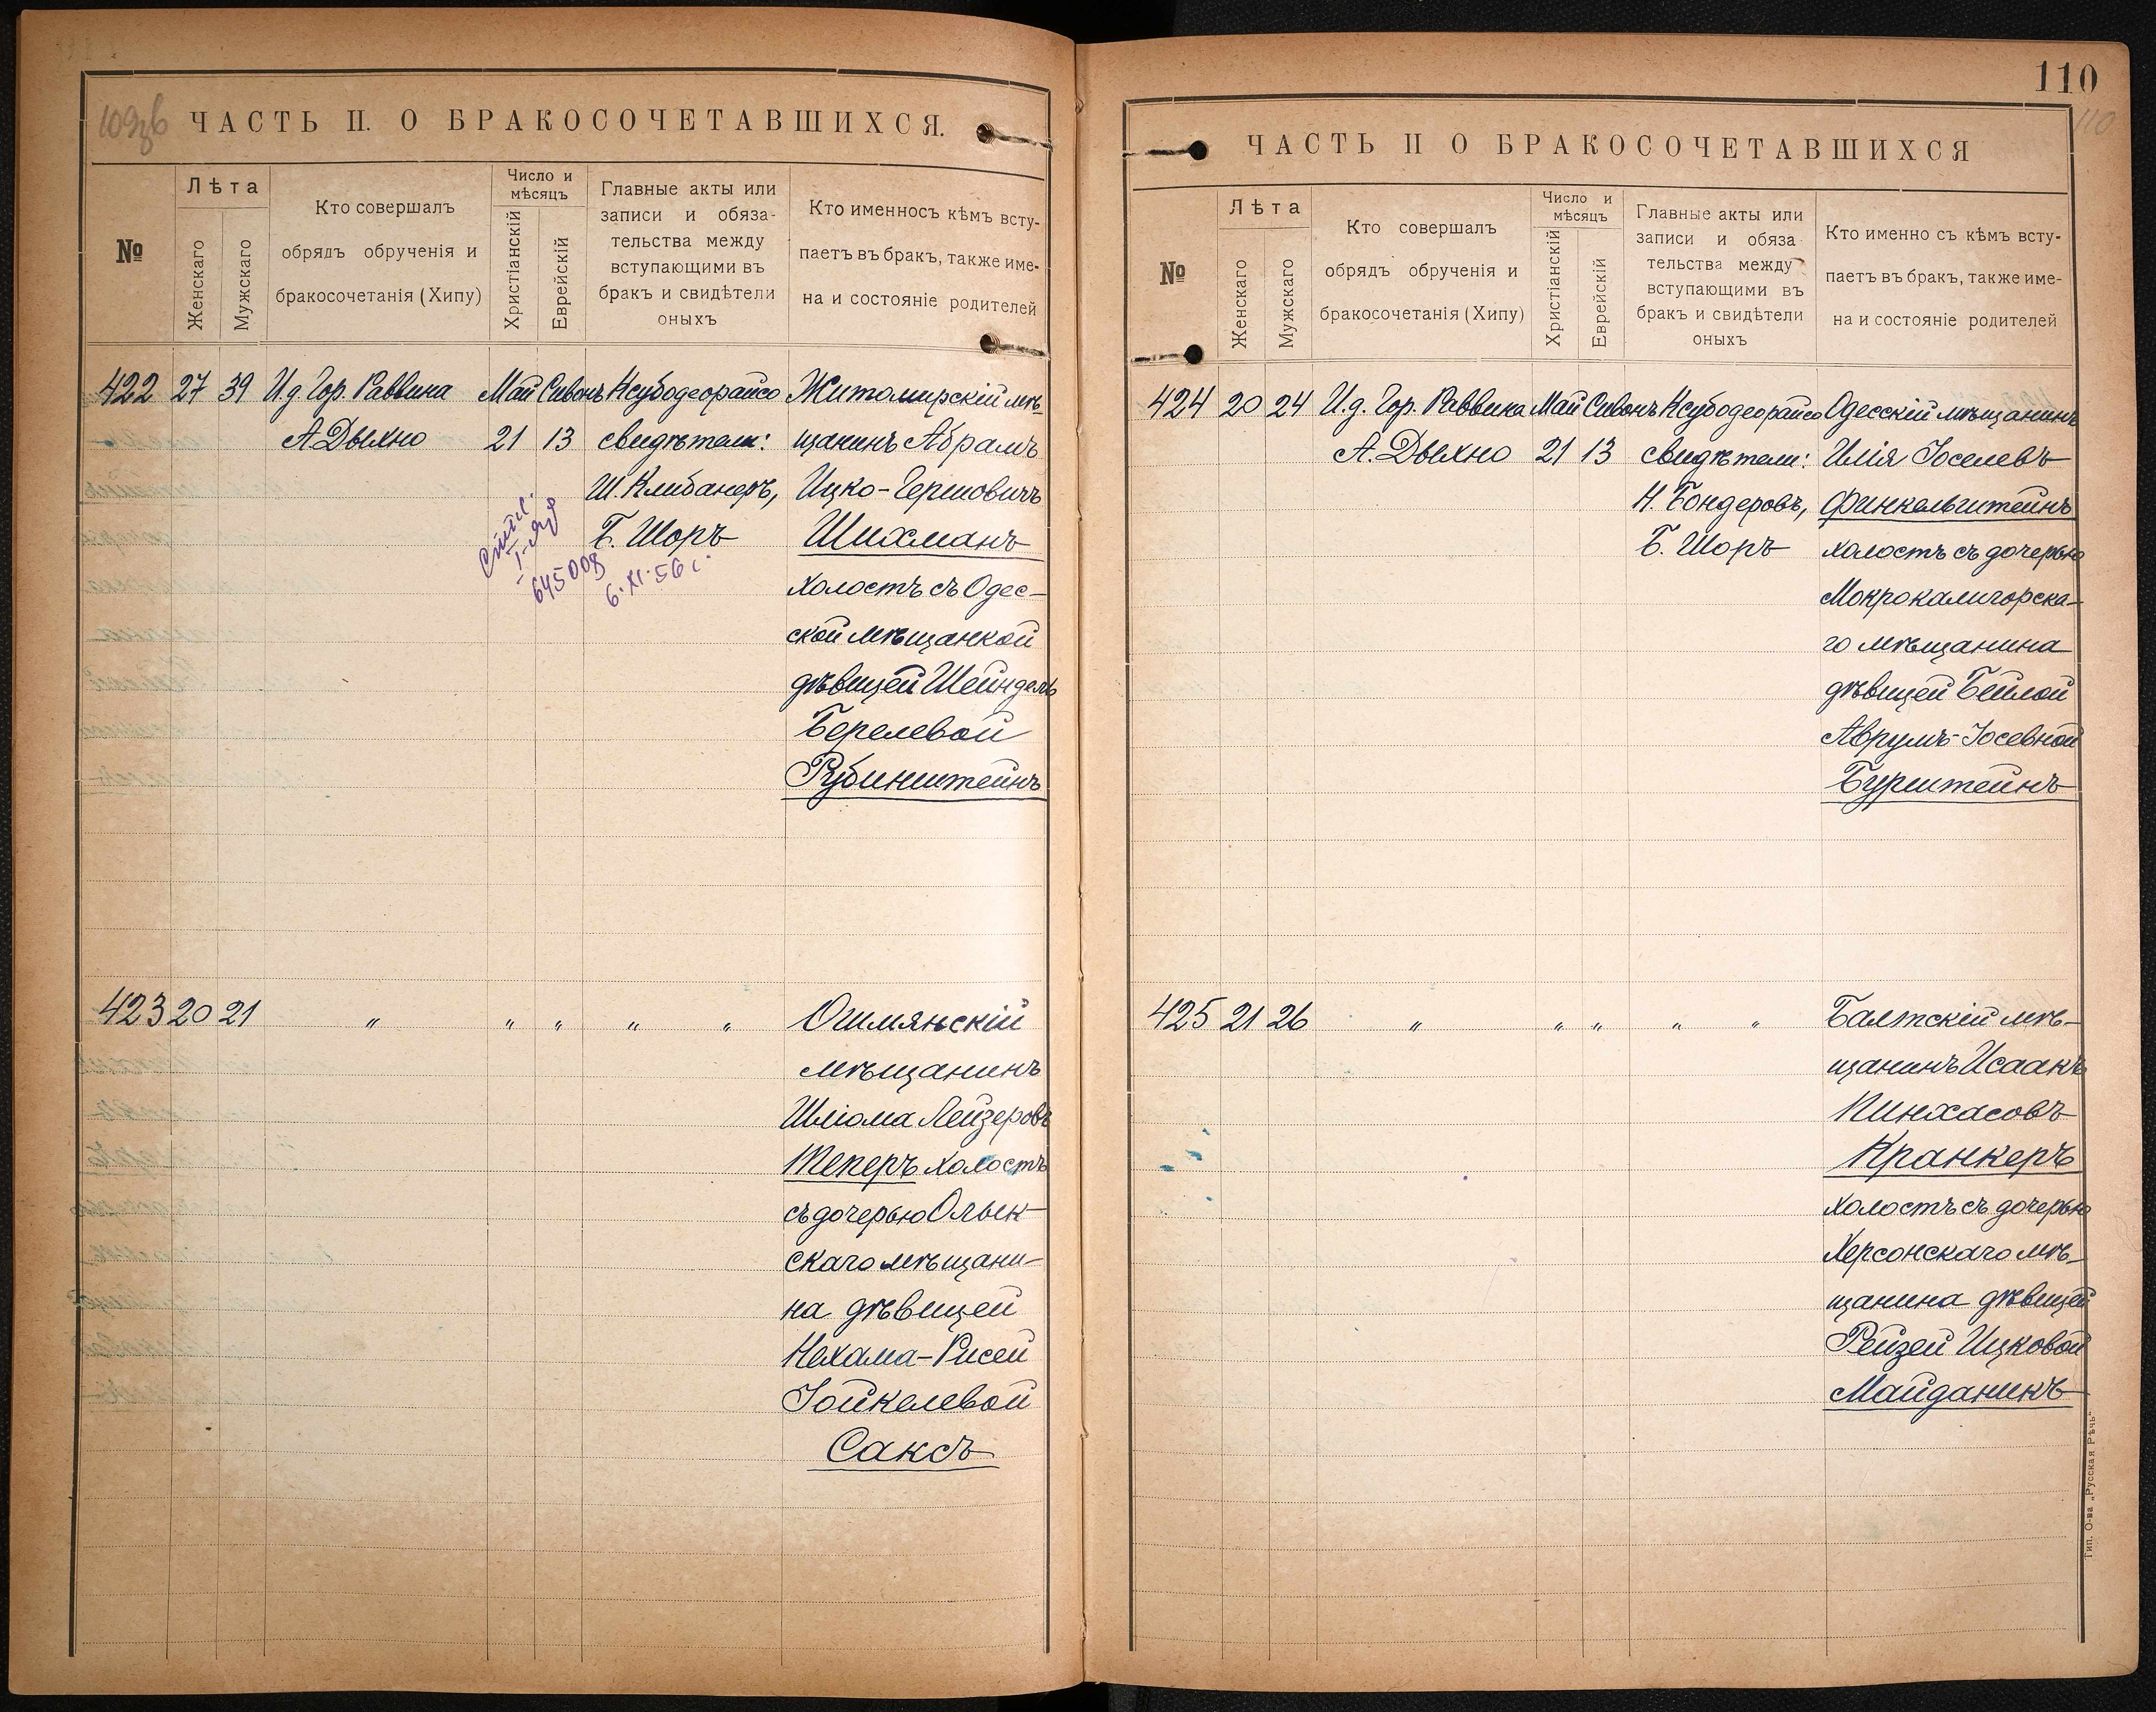 109об
ЧАСТЬ II. О БРАКОСОЧЕТАВШИХСЯ.
№
Лѣта
Женскаго
Мужскаго
Кто совершалъ
обрядъ обрученія и
бракосочетанія (Хипу)
Число и
мѣсяцъ
Христіанскій
Еврейскій
Главные акты или
записи и обяза-
тельства между
вступающими въ
бракъ и свидѣтели
оныхъ
Кто именносъ кѣмъ всту-
паетъ въ бракъ, также име-
на и состояніе родителей
422 27 39 И.д. Гор. Раввина Май Сивонъ Ксубодеорайсо Житомирскій мѣ-
А. Дыхно 21 13 свидѣтели: щанинъ Абрамъ
Ш. Клибанеръ, Ицко-Гершовичъ
Б. Шоръ Шихманъ
645008
6.XI.56 г.
холостъ съ Одес-
ской мѣщанкой
дѣвицей Шейндель
Берелевой
Рубинштейнъ
423 20 21 " " " " " Ошмянскій
мѣщанинъ
Шлiома Лейзеровъ
Теперъ холостъ
съ дочерью Олык-
скаго мѣщани-
на дѣвицей
Нехама-Рисей
Іойкелевой
Саксъ
110
110
ЧАСТЬ II О БРАКОСОЧЕТАВШИХСЯ
№
Лѣта
Женскаго
Мужскаго
Кто совершалъ
обрядъ обрученія и
бракосочетанія (Хипу)
Число и
мѣсяцъ
Христіанскій
Еврейскій
Главные акты или
записи и обяза
тельства между
вступающими въ
бракъ и свидѣтели
оныхъ
Кто именно съ кѣмъ всту-
паетъ въ бракъ, также име-
на и состояніе родителей
424 20 24 И.д. Гор. Раввина Май Сивонъ Ксубодеорайсо Одесскій мѣщанинъ
А. Дыхно 21 13 свидѣтели: Илія Іоселевъ
Н. Бондеровъ, Финкельштейнъ
Б. Шоръ холостъ съ дочерью
Мокрокалигорска-
го мѣщанина
дѣвицей Бейлой
Аврумъ-Іосевной
Бурштейнъ
425 21 26 " " " " " Балтскій мѣ-
щанинъ Исаакъ
Пинхасовъ
Кранкеръ
холостъ съ дочерью
Херсонскаго мѣ-
щанина дѣвицей
Рейзей Ицковой
Майданикъ
Тип. О-ва „Русская Рѣчь“